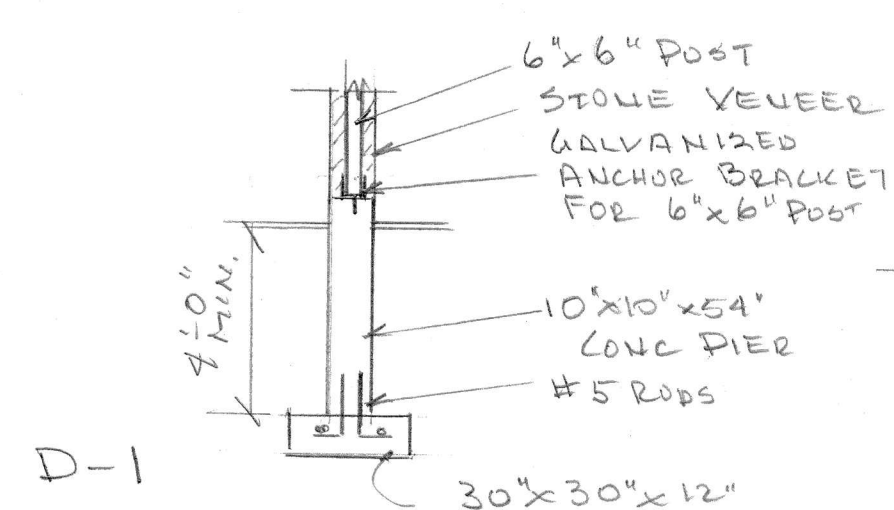 6"x6" POST
STONE VENEER
GALVANIZED
ANCHOR BRACKET
FOR 6"x6" POST
4'-0"
MIN.
10"x10"x54"
CONC PIER
#5 RODS
D-1
30"x30"x12"